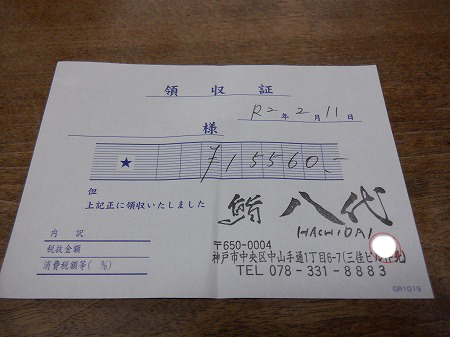 領収証
R2年2月11日
様
★ ¥15560.-
但
上記正に領収いたしました
鮨 八代
HACHIDAI
内訳
税抜金額
消費税額等( %)
〒650-0004
神戸市中央区中山手通1丁目6-7(三佳ビル
TEL 078-331-8883
GR1019